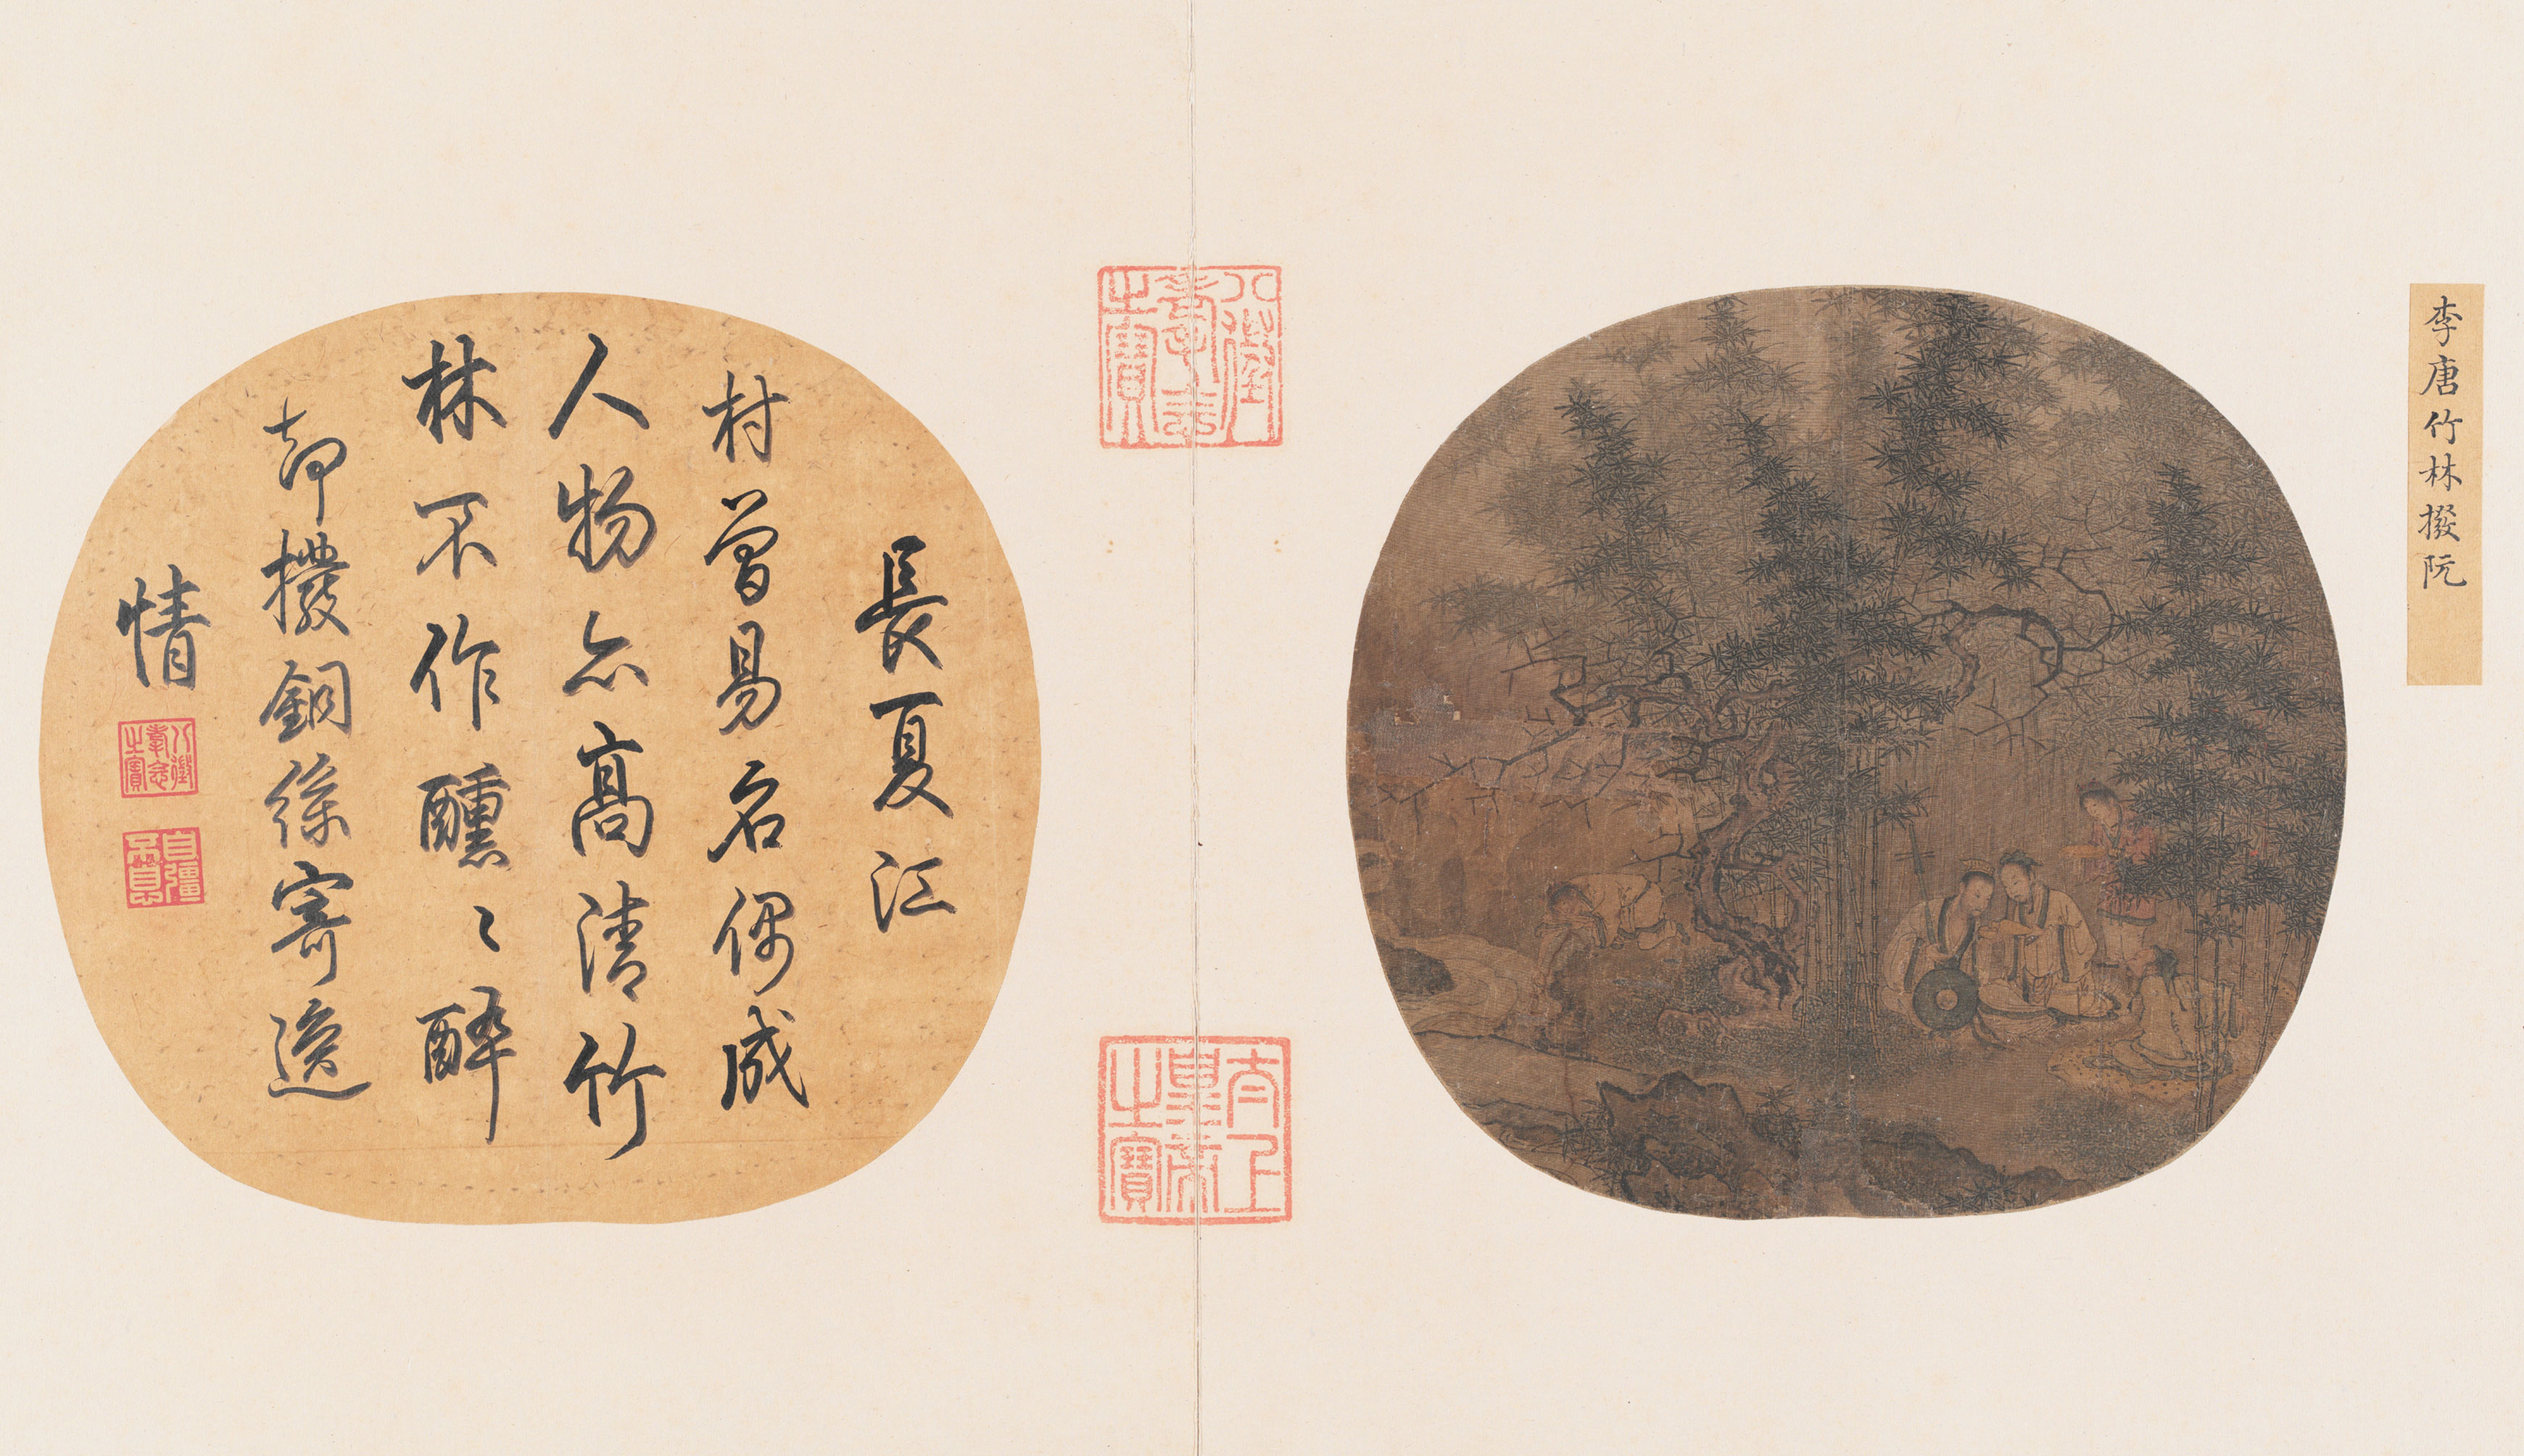 李唐竹林撥阮
八徵耄念之寶
太上皇帝之寶
長夏江
村曾易名偶成
人物亦高清竹
林不作醺〻醉
却撥銅絲寄逸
情
八徵耄念之寶
自彊不息